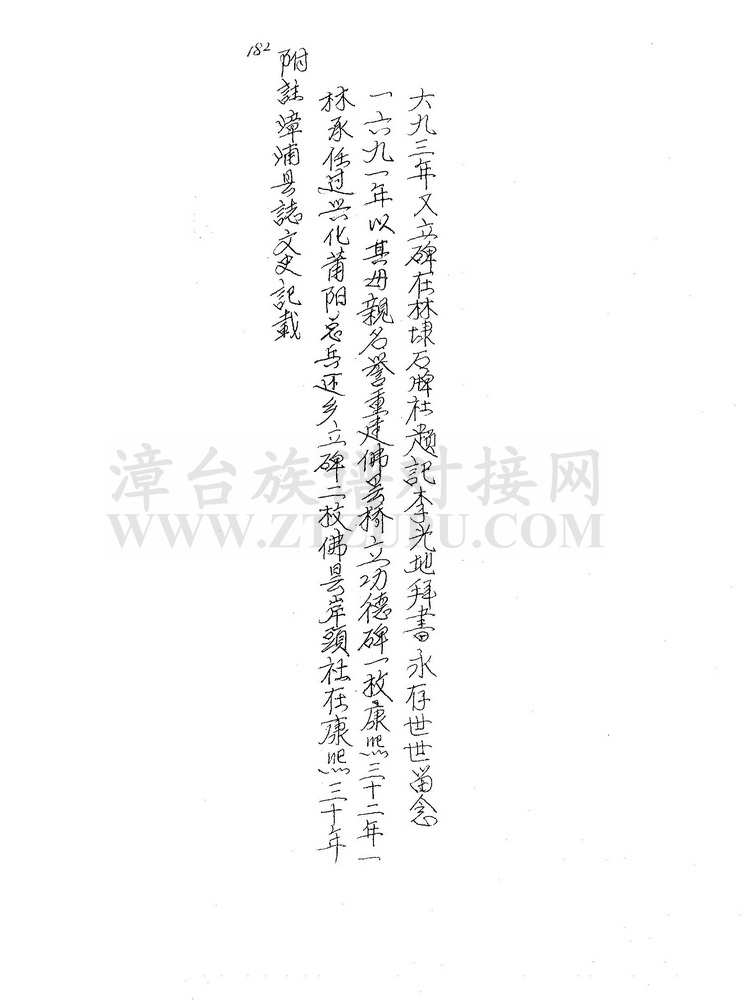 182
附註漳浦县誌文史記載
林承任过兴化莆阳总兵还乡立碑二枚佛昙岸頭社在康熙三十年
一六九一年以其母親名誉重建佛昙桥立功德碑一枚康熙三十二年一
六九三年又立碑在林埭石牌社题記李光地拜書永存世世留念
漳台族谱对接网
WWW.ZTZUPU.COM